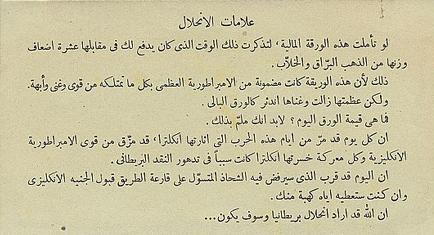 علامات الانحلال
لو تأملت هذه الورقة المالية، لتذكرت ذلك الوقت الذى كان يدفع لك فى مقابلها عشرة اضعاف
وزنها من الذهب البرّاق والخلاّب.
ذلك لأن هذه الوريقة كانت مضمونة من الامبراطورية العظمى بكل ما تمتلكه من قوى وغنى وأبهة.
ولكن عظمتها زالت وغناها اندثر كالورق البالى.
فما هى قيمة الورق اليوم؟ لابد انك ملمّ بذلك.
ان كل يوم قد مرّ من ايام هذه الحرب التى اثارتها انكلترا، قد مزّق من قوى الامبراطورية
الانكليزية وكل معركة خسرتها انكلترا كانت سبباً فى تدهور النقد البريطانى.
ان اليوم قد قرب الذى سيرفض فيه الشحاذ المتسوّل على قارعة الطريق قبول الجنيه الانكليزى
وان كنت ستعطيه اياه كهبة منك.
ان الله قد اراد انحلال بريطانيا وسوف يكون...